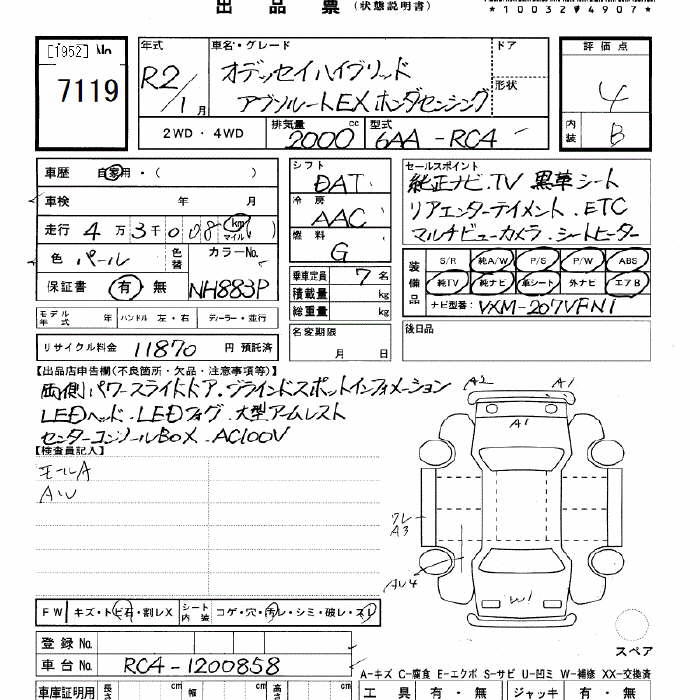 出品票（状態説明書）
*10032*4907*
[1952] No. 7119
年式 R2/1月
車名・グレード オデッセイハイブリッド
アブソルートEX ホンダセンシング
ドア
形状
評価点 4
内装 B
2WD・4WD 排気量 2000cc 型式 6AA-RC4
車歴 自家用・（ ）
車検 年 月
走行 4万3千008 km マイル
色 パール 色替 カラーNo. NH883P
保証書 有 無
シフト DAT
冷房 AAC
燃料 G
乗車定員 7名
積載量 kg
総重量 kg
セールスポイント
純正ナビ.TV 黒革シート
リアエンターテイメント.ETC
マルチビューカメラ.シートヒーター
装備品 S/R 純A/W P/S P/W ABS
純TV 純ナビ 革シート 外ナビ エアB
ナビ型番: VXM-207VFNi
モデル年式 年 ハンドル 左・右 ディーラー・並行
名変期限 月 日
後日品
リサイクル料金 11870 円 預託済
【出品店申告欄(不良箇所・欠品・注意事項等)】
両側パワースライドドア.ブラインドスポットインフォメーション
LEDヘッド.LEDフォグ.大型アームレスト
センターコンソールBOX.AC100V
【検査員記入】
モールA
AW
A2 A1
A1
ワレ
A3
AW4
W1
スペア
FW キズ・トビ石・割レX シート内装 コゲ・穴・汚レ・シミ・破レ・スレ
登録No.
車台No. RC4-1200858
A-キズ C-腐食 E-エクボ S-サビ U-凹ミ W-補修 XX-交換済
車庫証明用 長さ cm 幅 cm 高さ cm
工具 有・無 ジャッキ 有・無